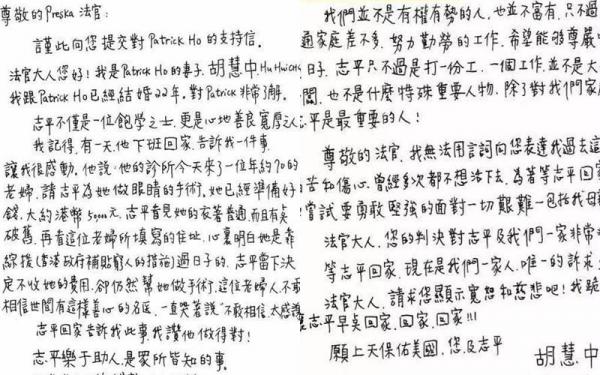 尊敬的Preska 法官:
謹此向您提交對Patrick Ho的支持信。
法官大人您好!我是Patrick Ho的妻子,胡慧中,Hu Hui
我跟Patrick Ho已經結婚22年,對Patrick非常了解。
志平不僅是一位飽學之士,更是心地善良寬厚之
我記得,有一天,他下班回家,告訴我一件事
讓我很感動。他說:他的診所今天來了一位年約70的
老婦,請志平為她做眼睛的手術,她已經準備好
錢,大約港幣50,000元,志平看見她的衣著普通,而且有
破舊,再看這位老婦所填寫的住址,心裏明白她是靠
綜援(香港政府補貼窮人的措施)過日子的,志平當下決
定不收她的費用,卻仍然幫她做手術,這位老婦人不敢
相信世間有這樣善心的名医,一直哭著說"不敢相信,太感謝
志平回家告訴我此事,我讚他做得對!
志平樂于助人,是眾所皆知的事。
我們並不是有權有勢的人,也並不富有,只不過
通家庭差不多,努力勤勞的工作,希望能夠尊嚴
日子,志平只不過是打一份工,一個工作,並不是大
闆,也不是什麼特殊重要人物,除了對我們家
平是最重要的人!
尊敬的法官,我無法用言詞向您表達我過去這
苦和傷心,曾經多次都不想活下去,為著等志平回家
嘗試要勇敢堅強的面對一切艱難—包括我
法官大人,您的判決對志平及我們一家非常
等志平回家,現在是我們一家人,唯一的訴求
法官大人,請求您顯示寬恕和慈悲吧!我
志平早点回家,回家,回家!!!
願上天保佑美國,您,及志平
胡慧中